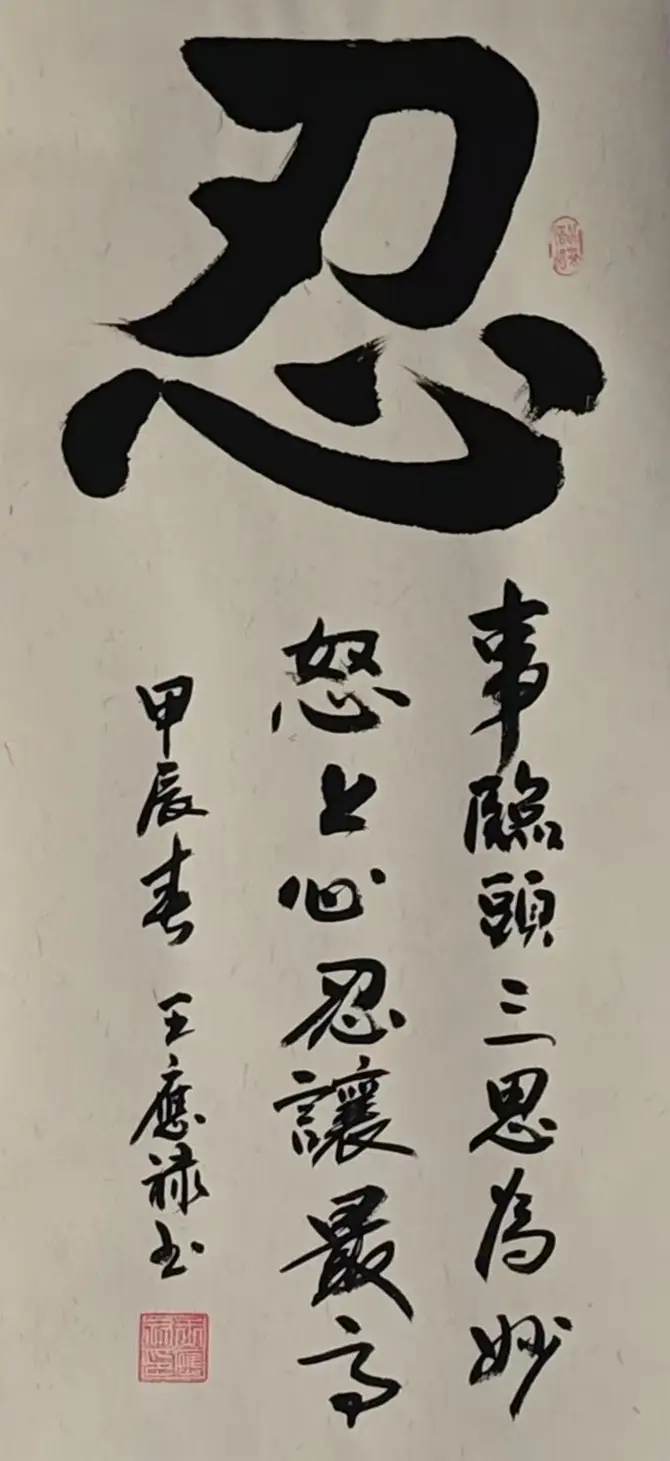 忍
事臨頭三思為妙
怒上心忍讓最高
甲辰春 王應祿书